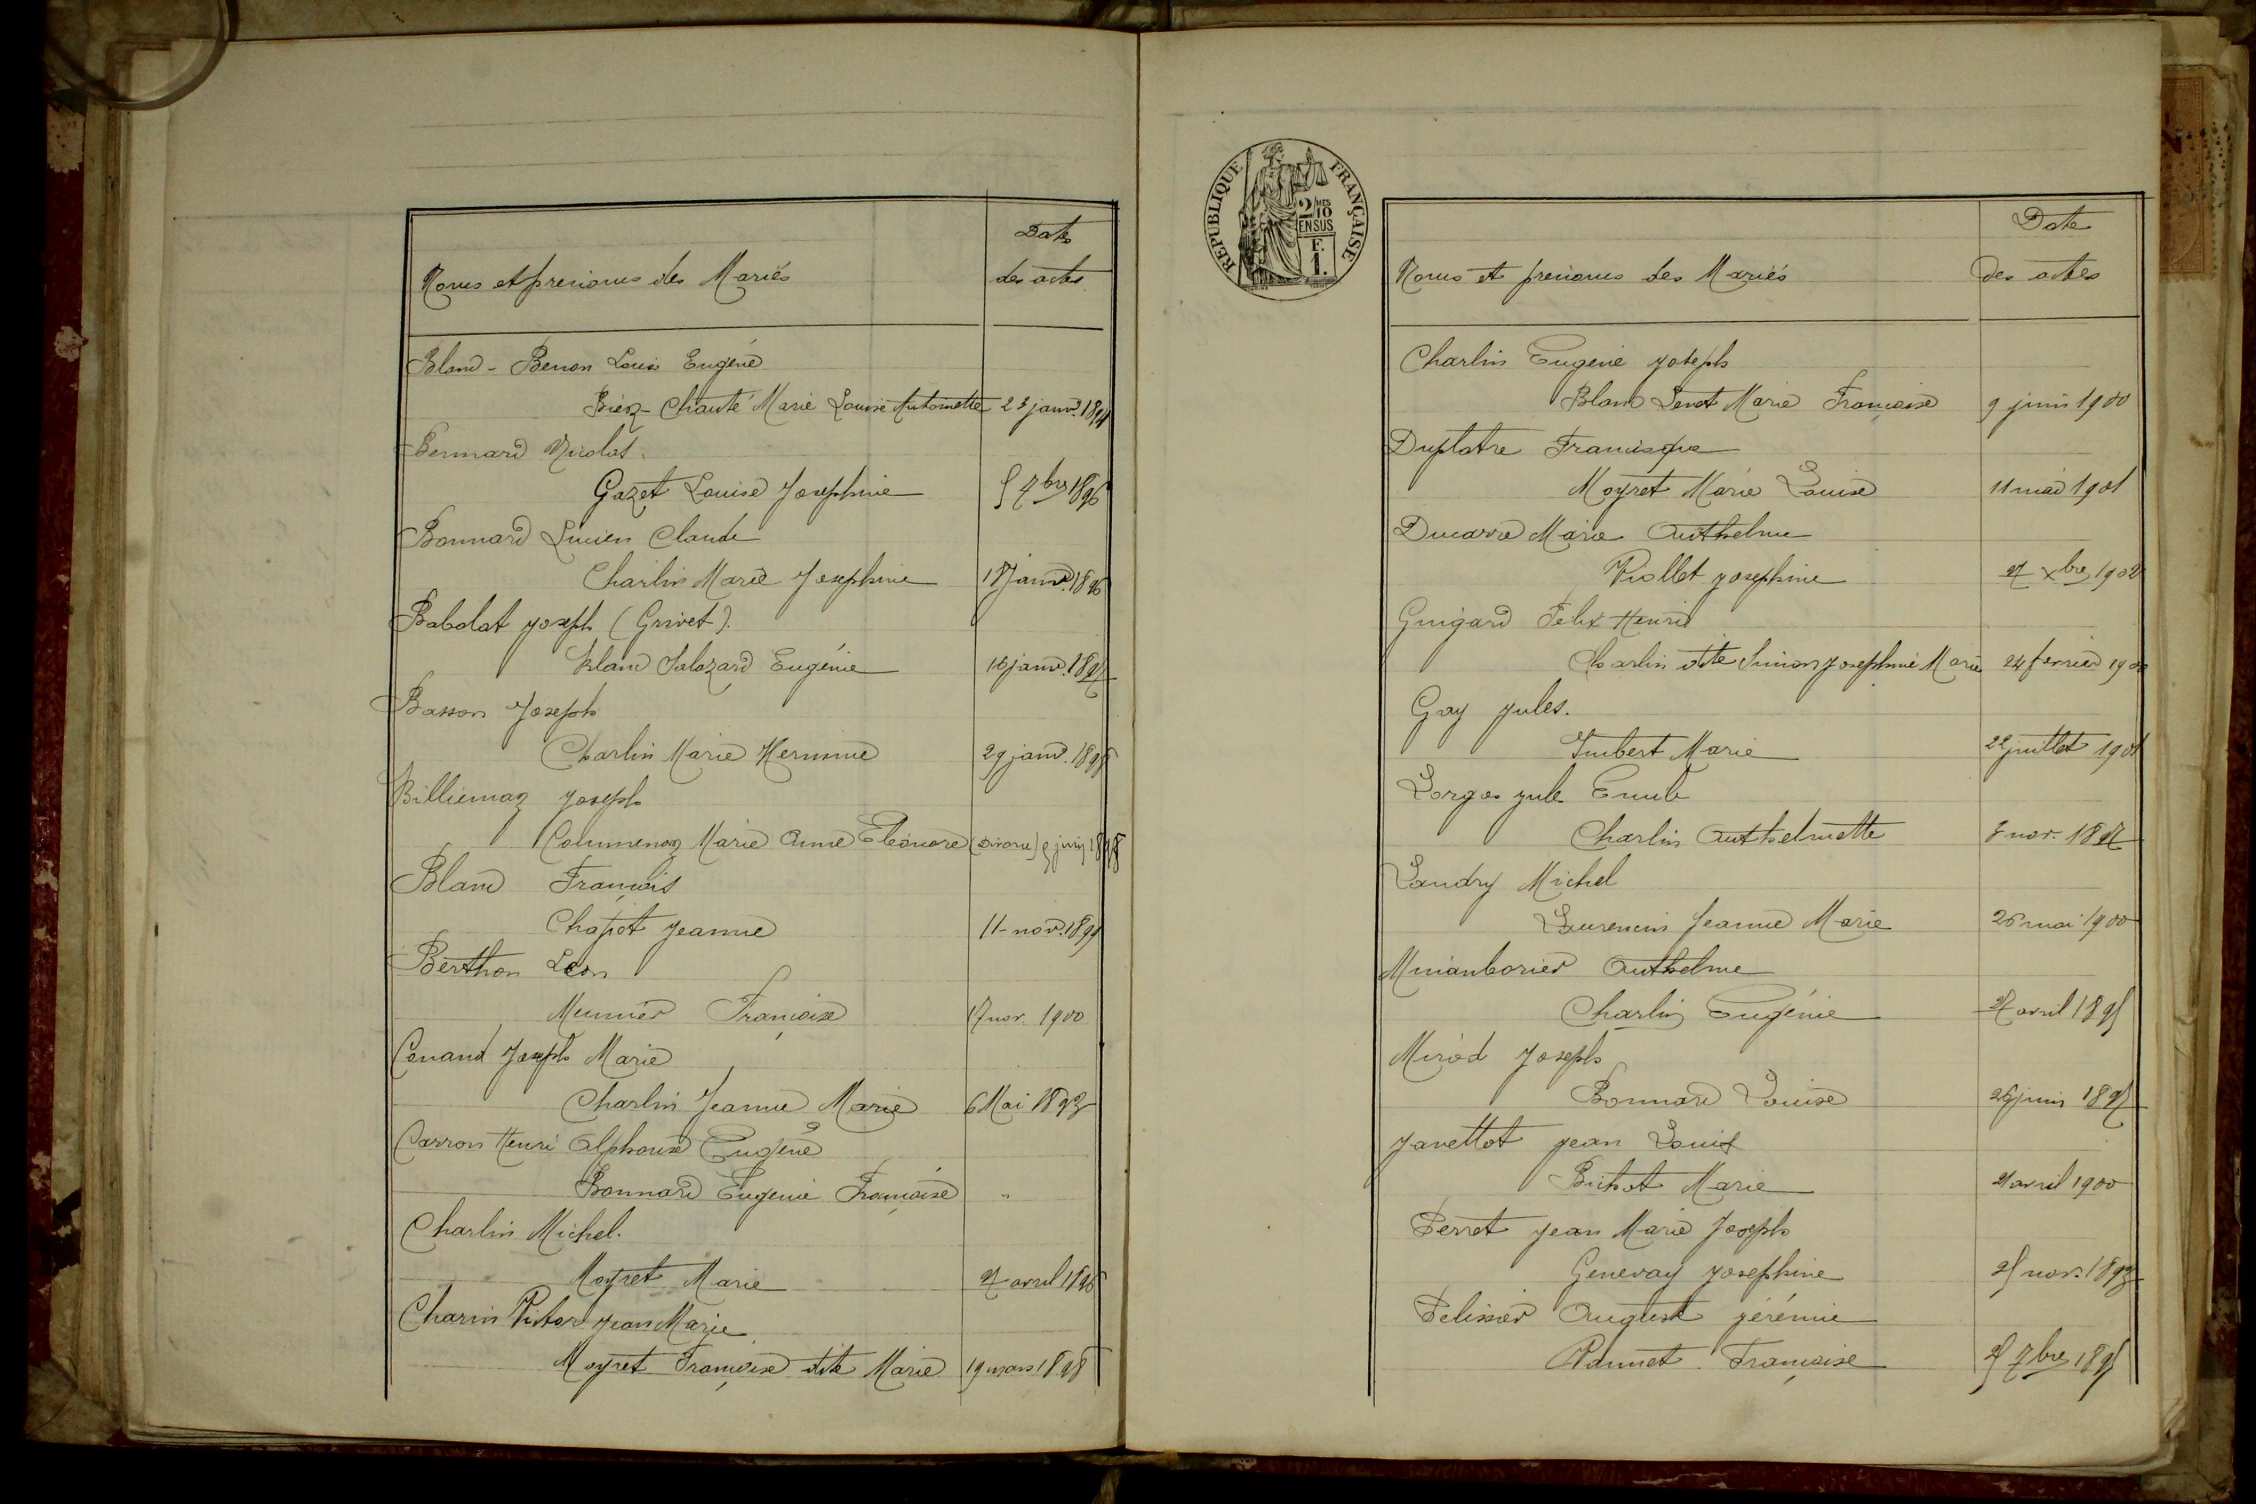 Date
Noms et prenoms des Mariés des actes
Blanc - Benon Louis Eugène
Biez- Chauté Marie Louise Antoinette 23 janv. 1894
Bennard Nicolas
Gazet Louise Josephine 5 7bre 1896
Bonnard Lucien Claude
Charlin Marie Josephine 18 janv. 1896
Babolat joseph (Grivet).
Blanc Salozard Eugénie 16 janv. 1897
Basson Joseph
Charlin Marie Hermine 29 janv. 1898
Billiemaz joseph
Columenaz Marie Anne Eléonore (divorce) 9 juin 1898
Blanc François
Chapot jeanne 11 - nov. 1899
Berthon Leon
Munnier Françoise 17 nov. 1900
Cenand Joseph Marie
Charlin Jeanne Marie 6 Mai 1893
Carron Henri Alphonse Eugène
Bonnard Eugenie Françoise "
Charlin Michel.
Moyret Marie 27 avril 1896
Charin Victor jean Marie
Moyret Françoise dite Marie 19 mars 1898
REPUBLIQUE FRANÇAISE
2/10 MES
EN SUS
F.
1.
Date
Noms et prenoms des Mariés des actes
Charlin Eugene joseph
Blanc Venot Marie Françoise 9 juin 1900
Duplatre Francisque
Moyret Marie Louise 11 mai 1901
Ducarre Marie Anthelme
Viollet josephine 27 xbre 1902
Guigard Felix Henri
Charlin dite Simion Josephine Marie 24 fevrier
Gay jules.
Imbert Marie 22 juillet 1901
Lorgos jule Emile
Charlin Anthelmette nov. 1897
Landry Michel
Laurencin Jeanne Marie 26 mai 1900
Anthelme
Charlin Eugénie 27 avril 1895
Miród Joseph
Bonnard Louise 26 juin 1897
Javettot jean Louis
Bichot Marie 21 avril 1900
Perret jean Marie Joseph
Genevay josephine 25 nov. 1893
Pelissier August jérémie
Pannet Françoise 25 7bre 1895